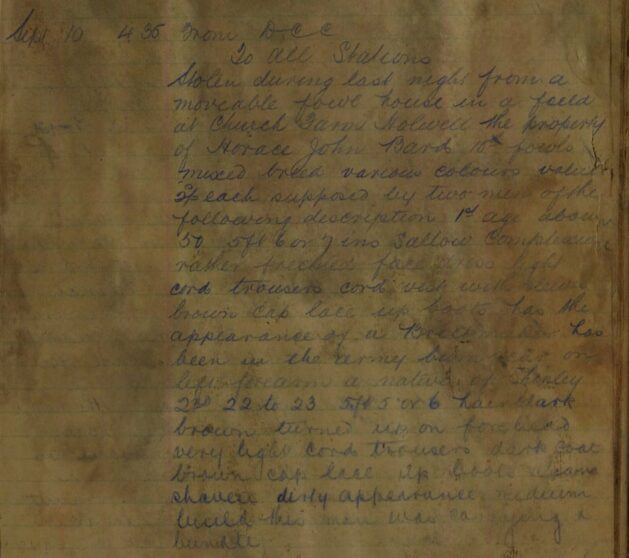 Sept 10 4 35 From D C C
To All Stations
Stolen during last night from a
moveable fowl house in a field
at Church Farm Holwell the property
of Horace John Bard 10 fowls
mixed breed various colours value
each supposed by two men of the
following description 1st age about
50 5ft 6 or 7 ins Sallow Complexion
rather freckled face dress light
cord trousers cord vest with sleeves
brown cap lace up boots has the
appearance of a Brickmaker has
been in the army burn scar on
left forearm a native of Henley
2nd 22 to 23 5ft 5 or 6 hair dark
brown turned up on forehead
very light cord trousers dark coat
brown cap lace up boots clean
shaven dirty appearance medium
build this man was carrying a
bundle